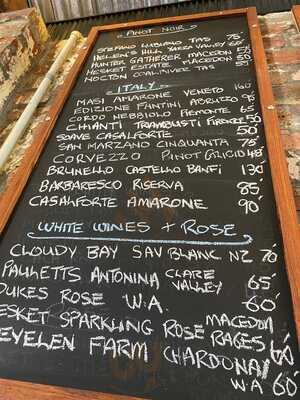 PINOT NOIR
STEFANO LUBIANA TAS 75'
HELEN'S HILL YARRA VALLEY 60'
HUNTER GATHERER MACEDON 55
HESKET ESTATE MACEDON 50
NOCTON COAL RIVER TAS 55
ITALY
MASI AMARONE VENETO 160'
EDIZIONE FANTINI ABRUZZO 95
CORDO NEBBIOLO PIEMONTE 65
CHIANTI TRAMBUSTI FIRENZE 50'
SOAVE CASALFORTE 50'
SAN MARZANO CINQUANTA 75'
CORVEZZO PINOT GRIGIO 48'
BRUNELLO CASTELLO BANFI 130'
BARBARESCO RISERVA 85'
CASALFORTE AMARONE 90'
WHITE WINES + ROSE
CLOUDY BAY SAV BLANC NZ 70'
PAULETTS ANTONINA CLARE VALLEY 65'
DUKES ROSE W.A. 60'
HESKET SPARKLING ROSE MACEDON RAGES 60'
EYELEN FARM CHARDONAY W.A 60'